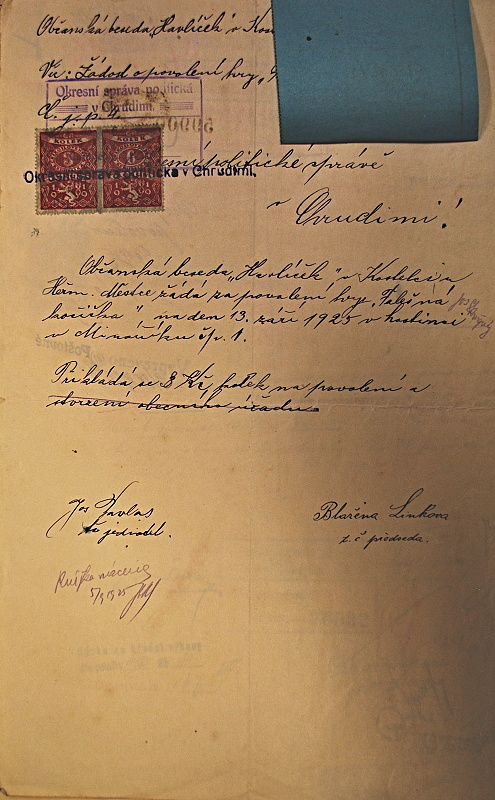 Občanská beseda „Havlíček" v Kos
Věc: Žádost o povolení hry „
Okresní správa politická
v Chrudimi.
C. j. p. 4.
KOLEK KOLEK
Okresní správa politická v Chrudimi.
politické správě
v Chrudimi!
Občanská beseda „Havlíček" v Kostelci u
Heřm. Městce žádá za povolení hry „Falešná
kočička" na den 13. září 1925 v hostinci
u Minaříku čp. 1.
Přikládá se 8 Kč kolek na povolení a
stvrzení obecního úřadu.
Jos Pavlas
t. č. jednatel.
Blažena Linkova
t. č. předseda.
5/9 1925